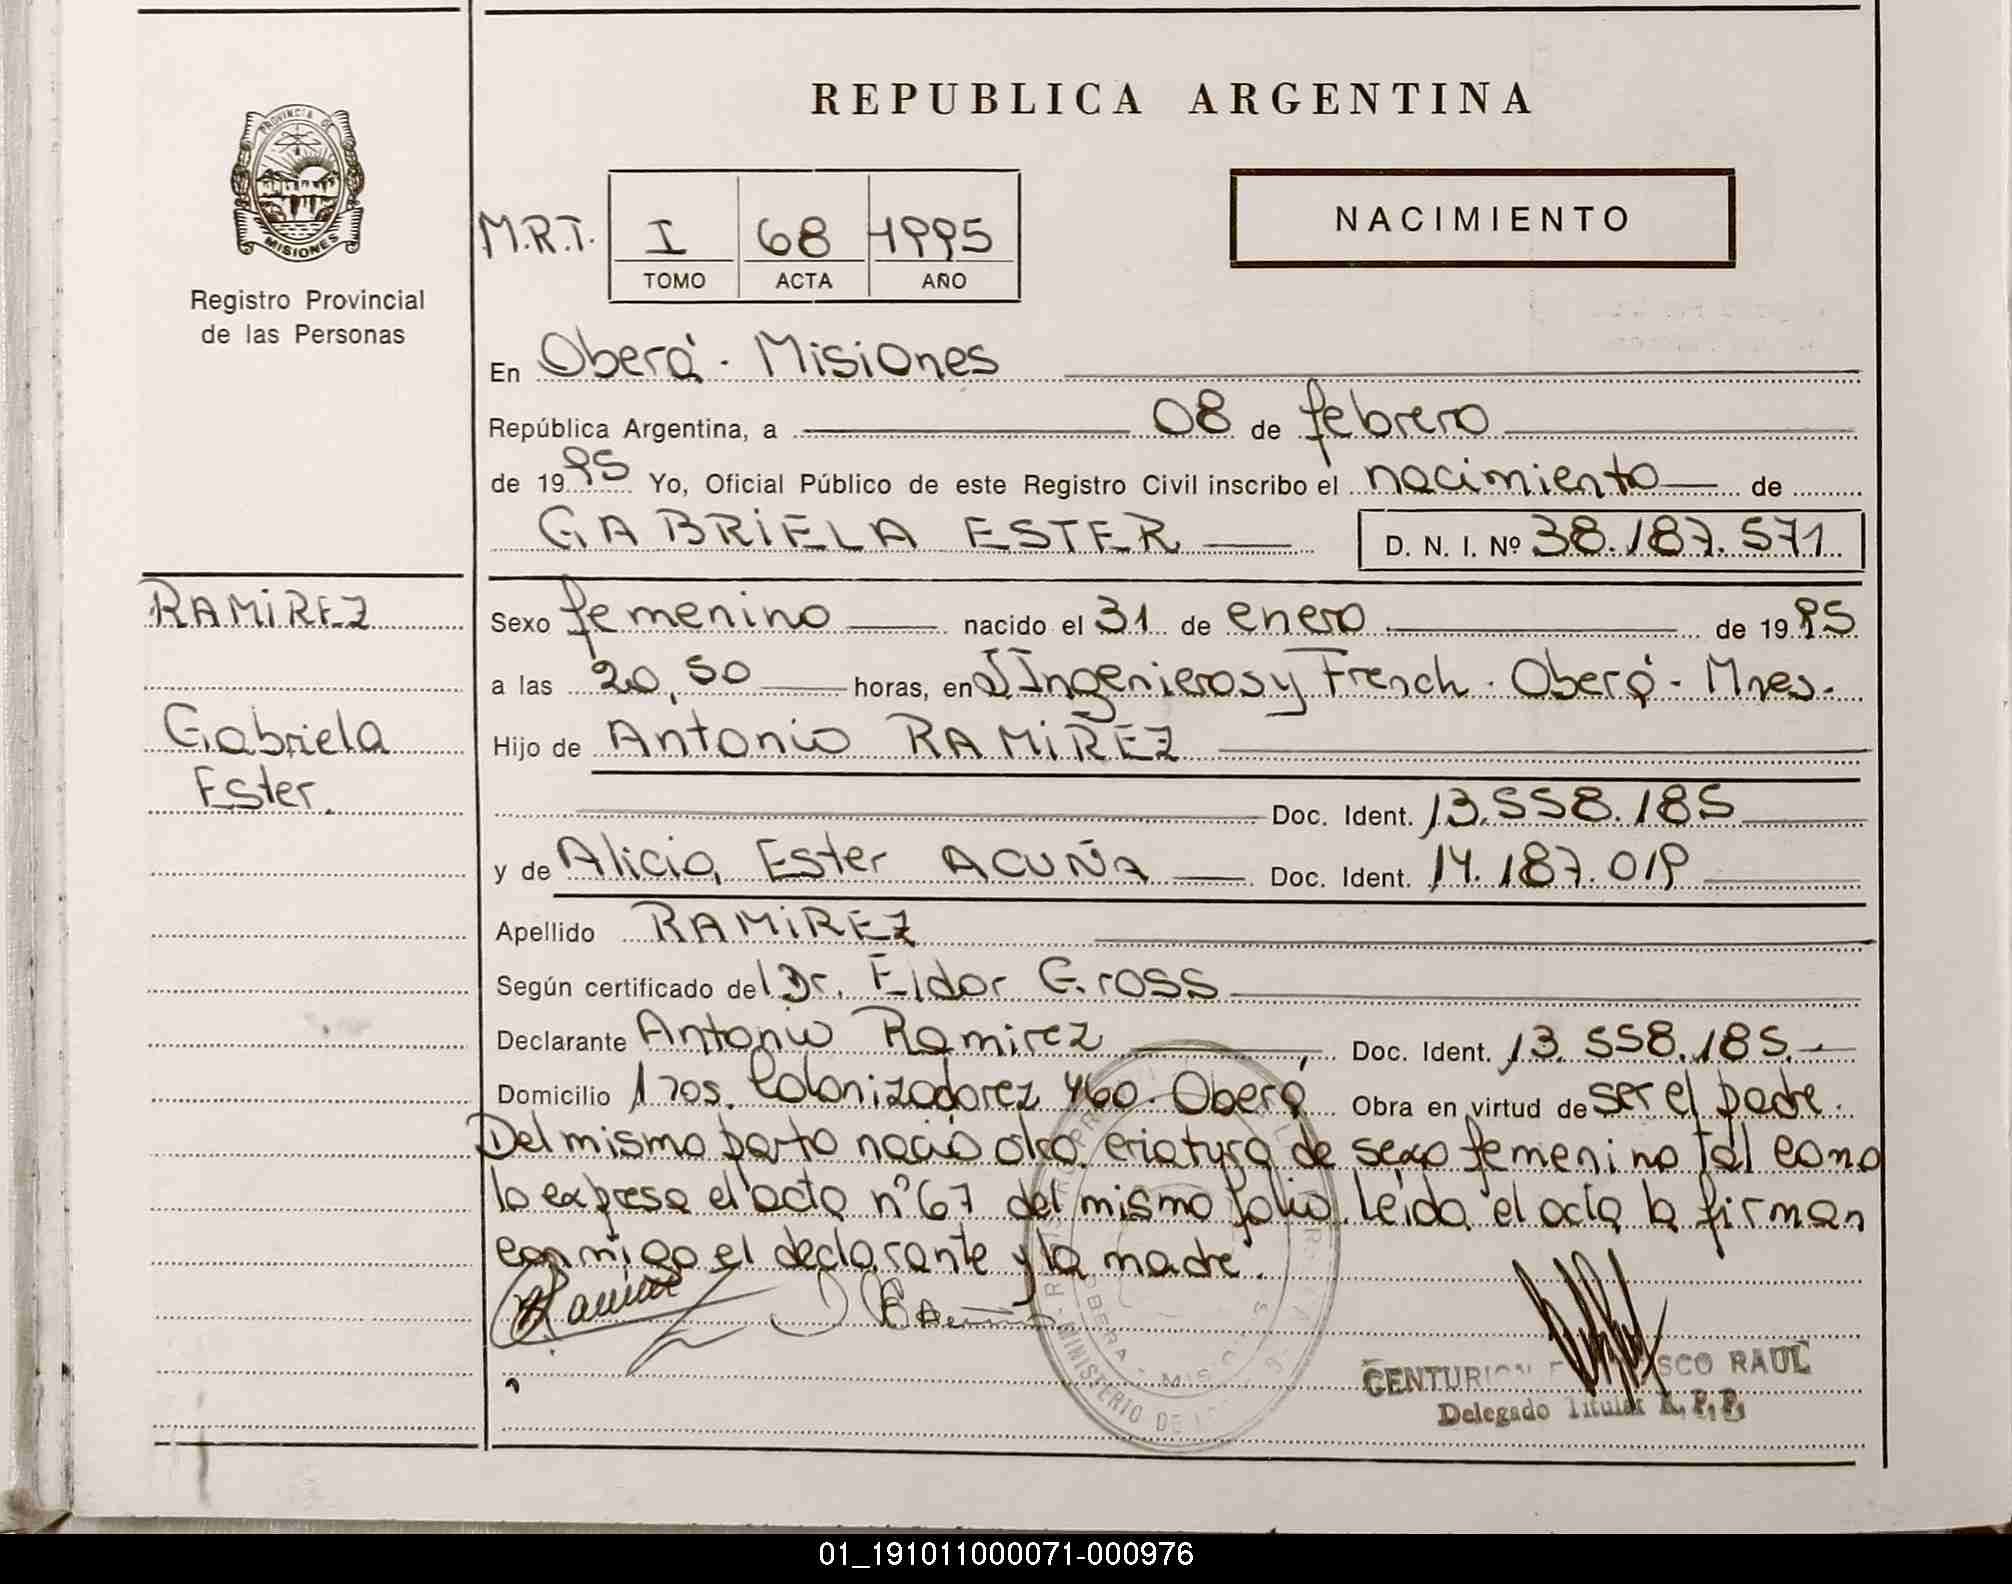 REPUBLICA ARGENTINA
PROVINCIA DE
MISIONES
Registro Provincial
de las Personas
NACIMIENTO
M.R.T. I 68 1995
TOMO ACTA AÑO
En Oberá - Misiones
República Argentina, a 08 de febrero
de 1995 Yo, Oficial Público de este Registro Civil inscribo el nacimiento de
GABRIELA ESTER D. N. I. Nº 38.187.571
RAMIREZ
Gabriela
Ester.
Sexo femenino nacido el 31 de enero de 1995
a las 20,50 horas, en J Ingenieros y French - Oberá - Mnes.
Hijo de Antonio RAMIREZ
Doc. Ident. 13.558.185
y de Alicia Ester ACUÑA Doc. Ident. 14.187.019
Apellido RAMIREZ
Según certificado del Dr. Eldor Gross
Declarante Antonio Ramirez Doc. Ident. 13.558.185.
Domicilio 1ros. Colonizadorez 460. Oberá Obra en virtud de ser el padre.
Del mismo parto nació otra criatura de sexo femenino tal como
lo expresa el acta nº 67 del mismo folio. Leída el acta la firman
conmigo el declarante y la madre.
RAUL
Delegado Titular R. P. P.
OBERA - MISIONES
MINISTERIO DE
01_191011000071-000976